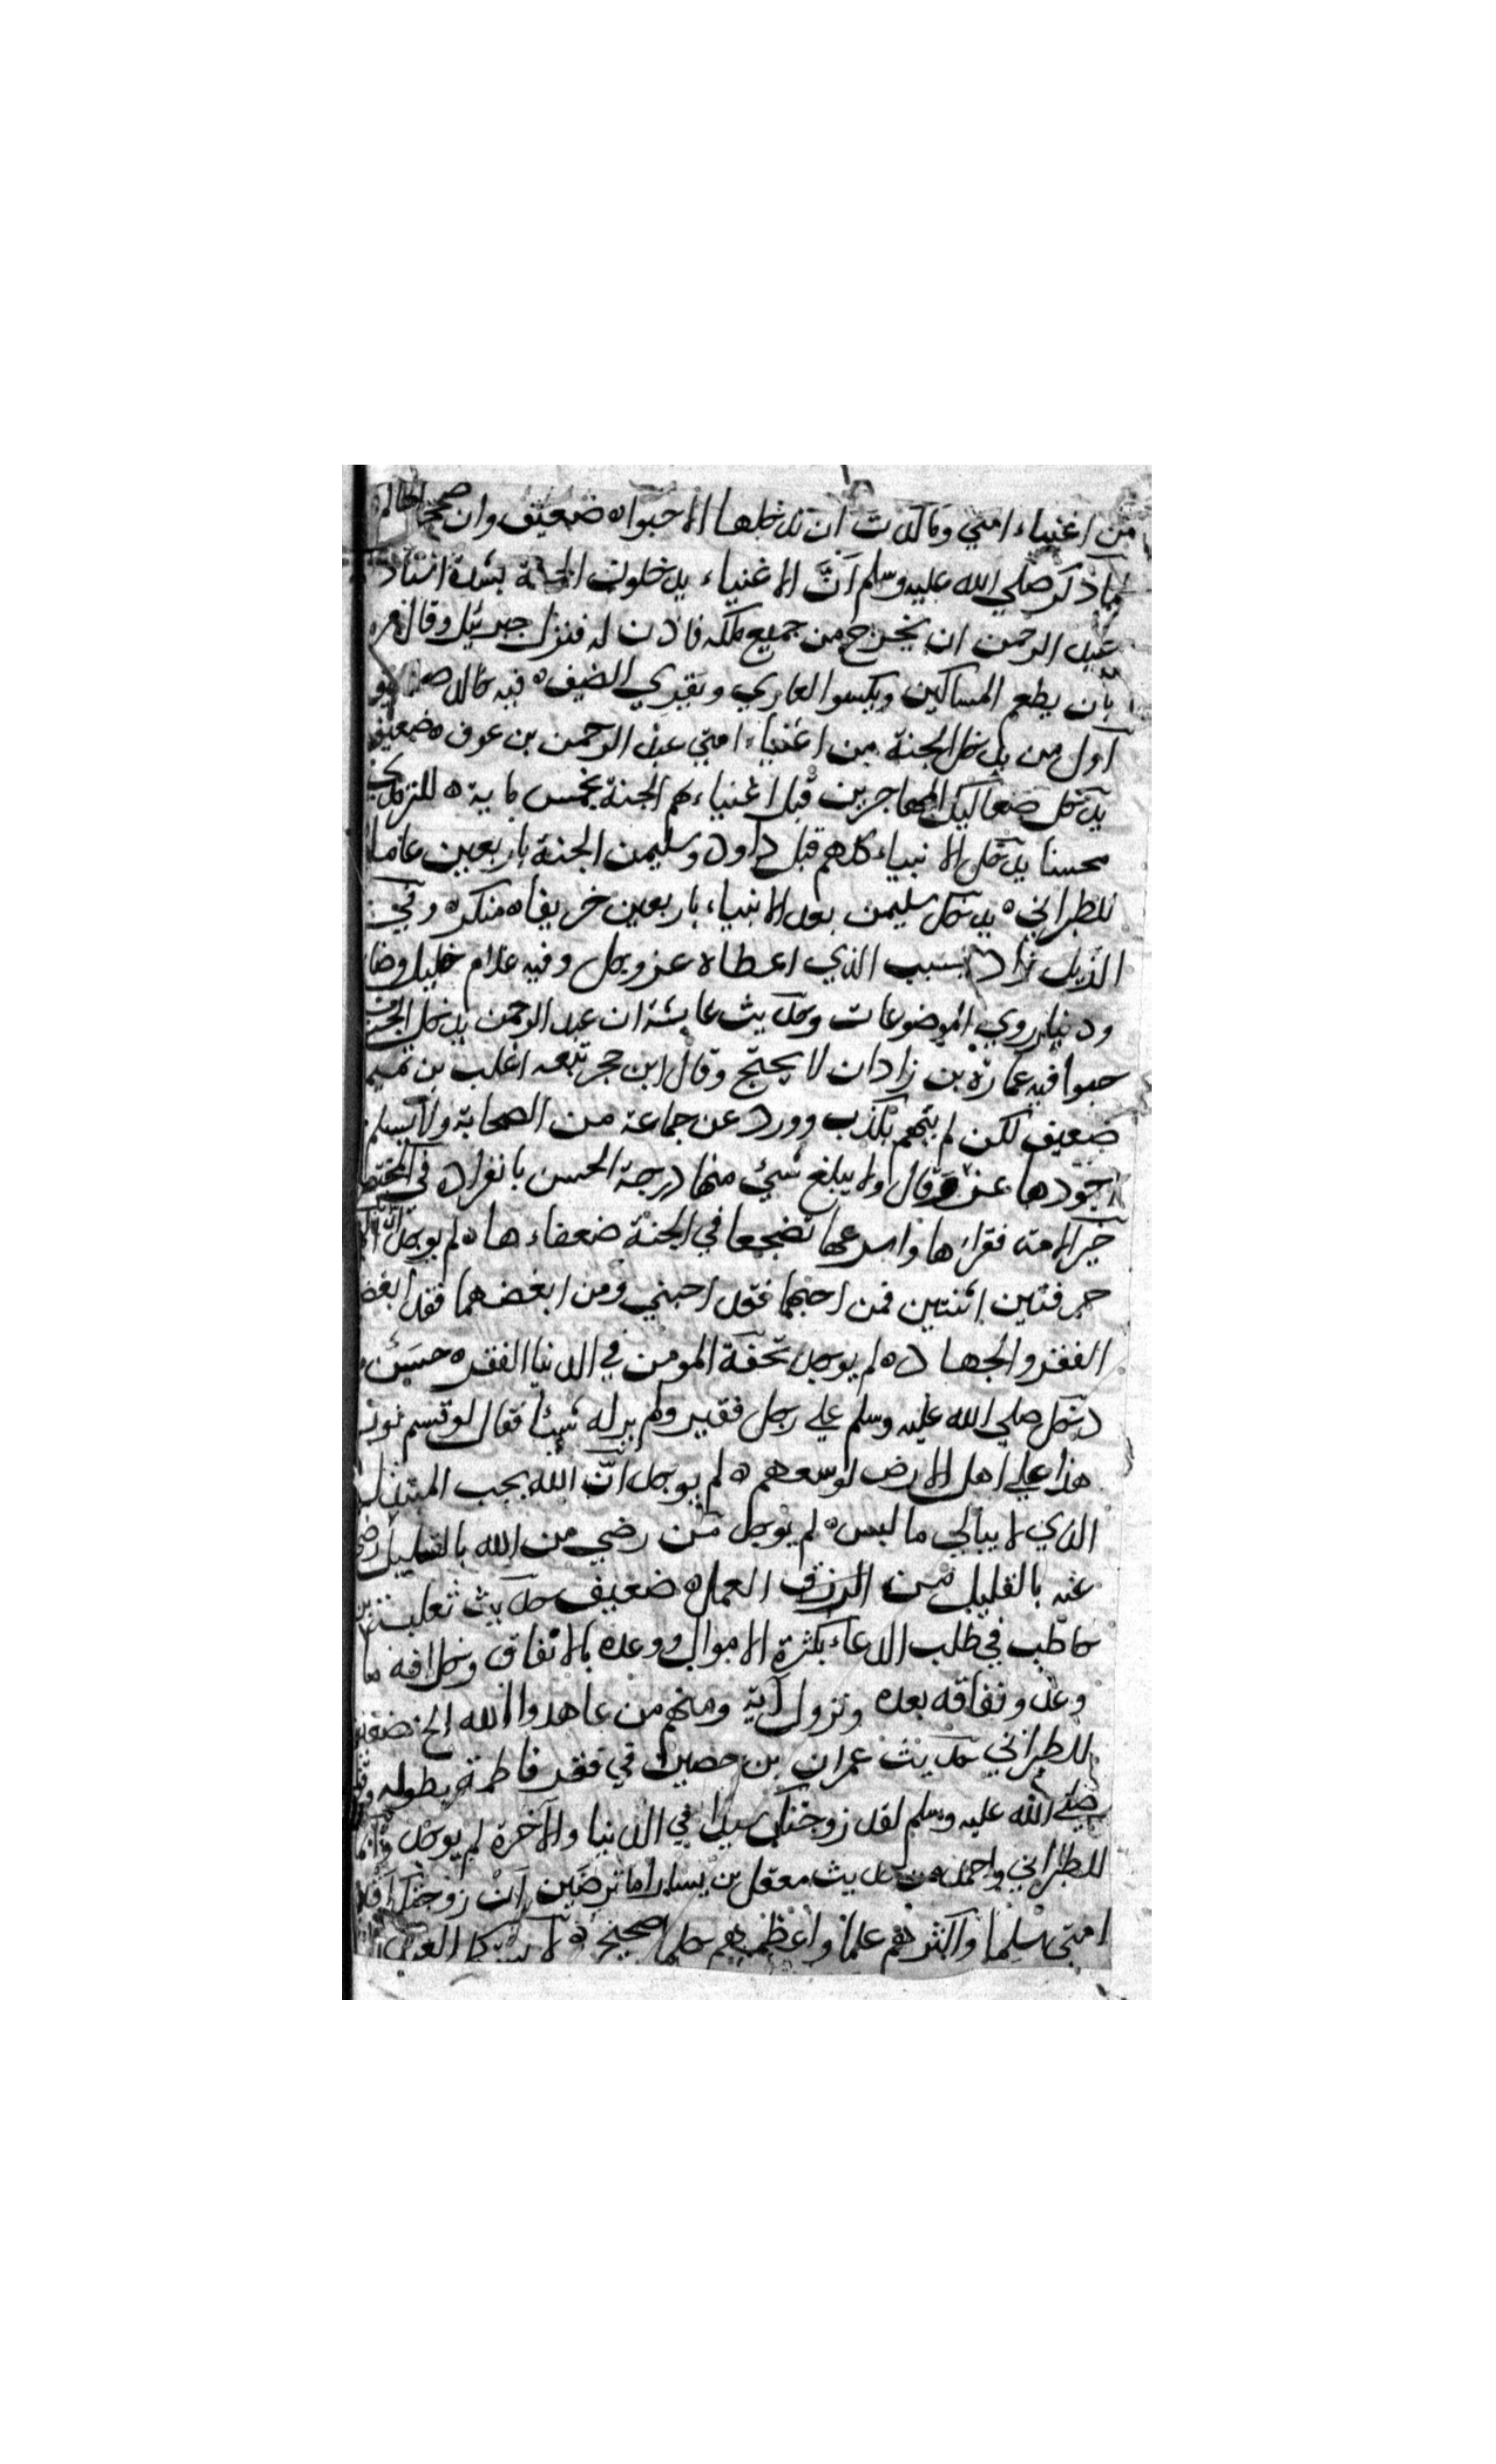 من اغنياء امتي وما كدت ان تدخلها الا حبوا ه ضعيف وان صححه الحاكم
لما ذكر صلي الله عليه وسلم أنَّ الاغنياء يدخلون الجنة بشدة استاذ
عبد الرحمن ان يخرج من جميع ملكه فاذن له فنزل جبرئيل وقال مره
بان يطعم المساكين ويكسوا العاري ويقري الضيف ه فيه خالد ضعيف
اول من يدخل الجنة من اغنياء امتي عبد الرحمن بن عوف ه ضعيف
يدخل صعاليك المهاجرين قبل اغنياءهم الجنة بخمس ماية ه للترمذي
محسنا يدخل الانبياء كلهم قبل داود وسليمن الجنة باربعين عاما
للطبراني ه يدخل سليمن بعد الانبياء باربعين خريفا ه منكره وفي
الذيل زاد بسبب الذي اعطاه عز وجل وفيه غلام خليل وضا
ودينار روي الموضوعات وحديث عايشة ان عبد الرحمن يدخل الجنة
حبوا فيه عمارة بن زادان لا يحتج وقال ابن حجر تبعه اغلب بن تميم
ضعيف لكن لم يتهم بكذب وورد عن جماعة من الصحابة ولا يسلم
اجودها عن وقال ولا يبلغ شيئ منها درجة الحسن بانفراد في المختصر
خير الامة فقراءها واسرعها تضجعا في الجنة ضعفاءها ه لم يوجد ان
حرفتين اثنتين فمن احبهما فقد احبني ومن ابغضهما فقد ابغض
الفقر والجهاد ه لم يوجد تحفة المومن في الدنيا الفقر ه حسن
دخل صلي الله عليه وسلم علي رجل فقير ولم ير له شيئا فقال لو قسم نور
هذا علي اهل الارض لوسعهم ه لم يوجد انّ الله يحب المتبذل
الذي لا يبالي ما لبس ه لم يوجد من رضي من الله بالقليل رضي
عنه بالقليل من الرزق العمل ه ضعيف حديث ثعلبة بن
حاطب في طلب الدعاء بكثرة الاموال ووعده بالانفاق وخلافه ما
وعد ونفاقه بعده ونزول آية ومنهم من عاهدوا الله الخ ضعيف
للطبراني حديث عمران بن حصين في فقر فاطمة بطوله
صلي الله عليه وسلم لقد زوجتك سيدا في الدنيا والآخرة لم يوجد وانما
للطبراني واحمد من حديث معقل بن يسار اما ترضين ان زوجتك اقدم
امتي سلما واكثرهم علما واعظمهم حلما صحيح ه لا